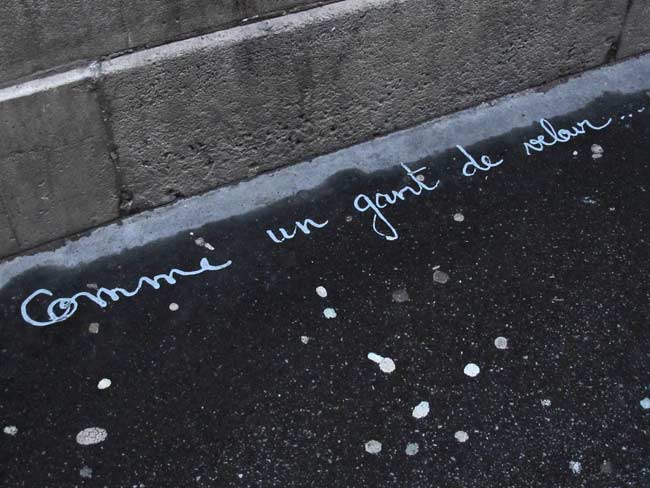 Comme un gant de velour...